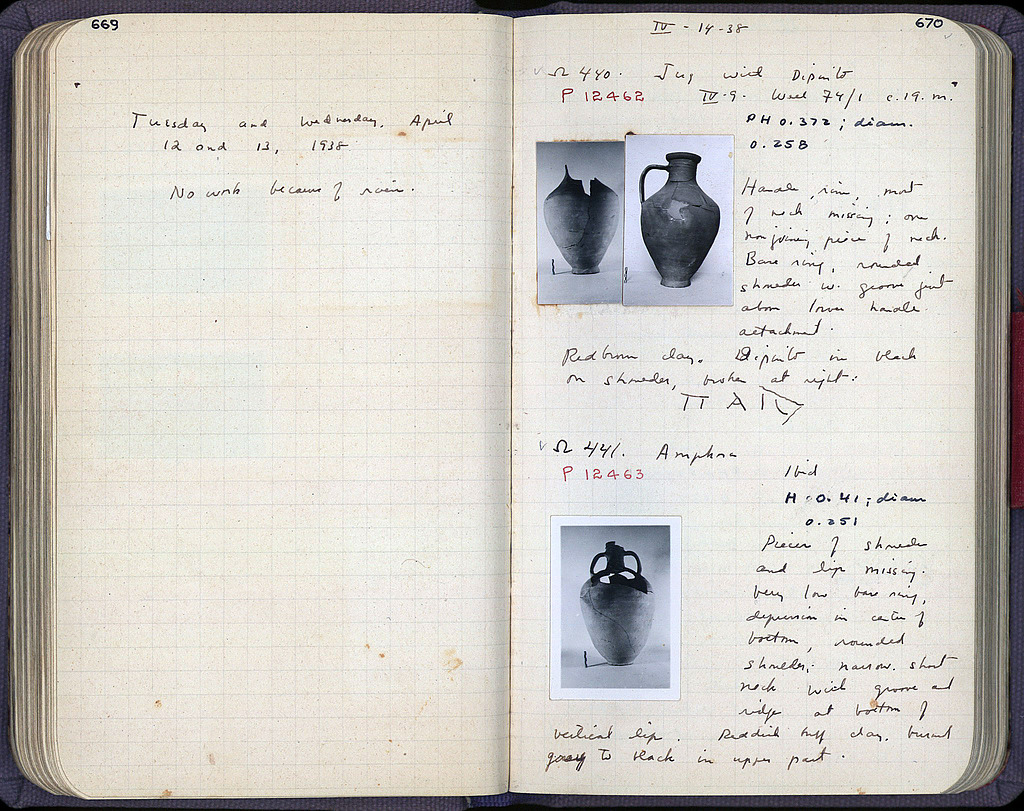 669
Tuesday and Wednesday, April
12 and 13, 1938
No work because of rain.
IV - 14 - 38
670
Ω 440. Jug with Dipinto
P 12462 IV-9. Well 74/1 c.19.m.
PH 0.372; diam.
0.258
Handle, rim, most
of neck missing; one
nonjoining piece of neck.
Base ring, rounded
shoulder w. groove just
above lower handle
attachment.
Redbrown clay. Dipinto in black
on shoulder, broken at right:
Π Α Ι
Ω 441. Amphora
P 12463
Ibid
H - 0.41; diam
0.251
Pieces of shoulder
and lip missing.
Very low base ring,
depression in center of
bottom, rounded
shoulder; narrow short
neck with groove and
ridge at bottom of
vertical lip. Reddish buff clay, burnt
gray to black in upper part.